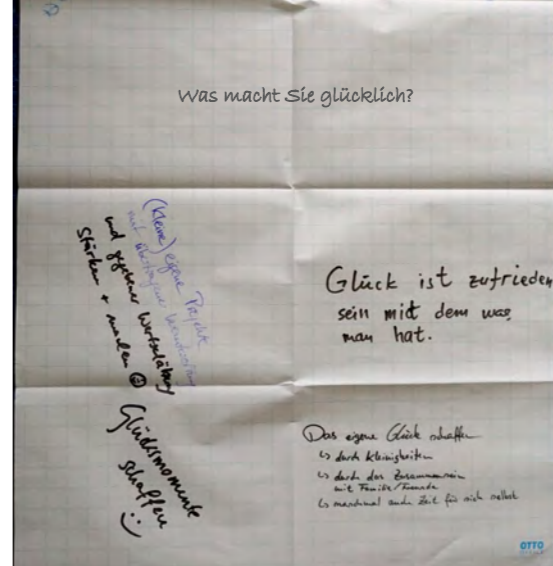 Was macht Sie glücklich?
(kleine) eigene Projekte
mit übertragener Verantwortung
und gegebener Wertschätzung
Stärken +
Glücksmomente
schaffen :-)
Glück ist zufrieden
sein mit dem was
man hat.
Das eigene Glück schaffen
↳ durch Kleinigkeiten
↳ durch das Zusammensein
mit Familie/Freunde
↳ manchmal auch Zeit für sich selbst
OTTO